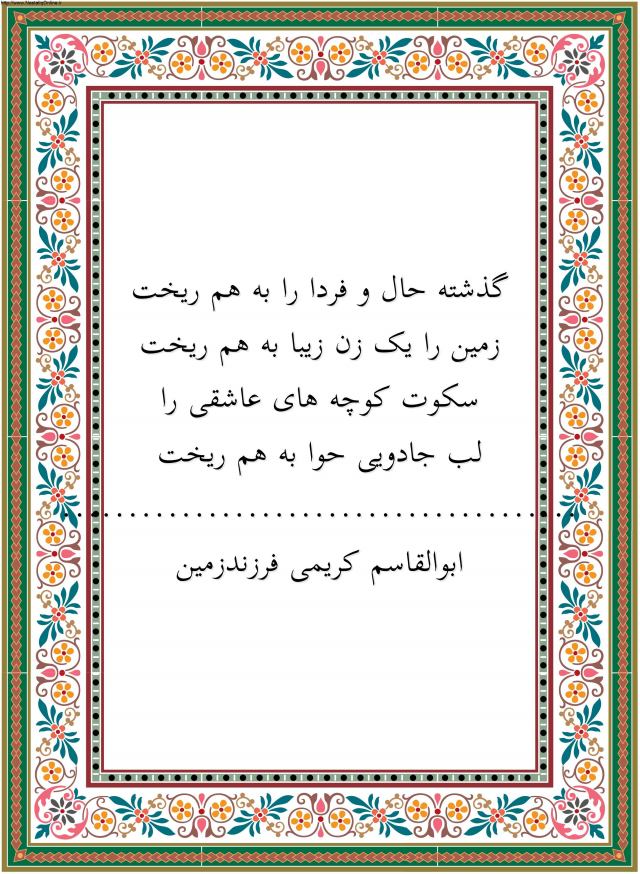 http://www.NastaliqOnline.ir
گذشته حال و فردا را به هم ریخت
زمین را یک زن زیبا به هم ریخت
سکوت کوچه های عاشقی را
لب جادویی حوا به هم ریخت
......................................
ابوالقاسم کریمی فرزندزمین